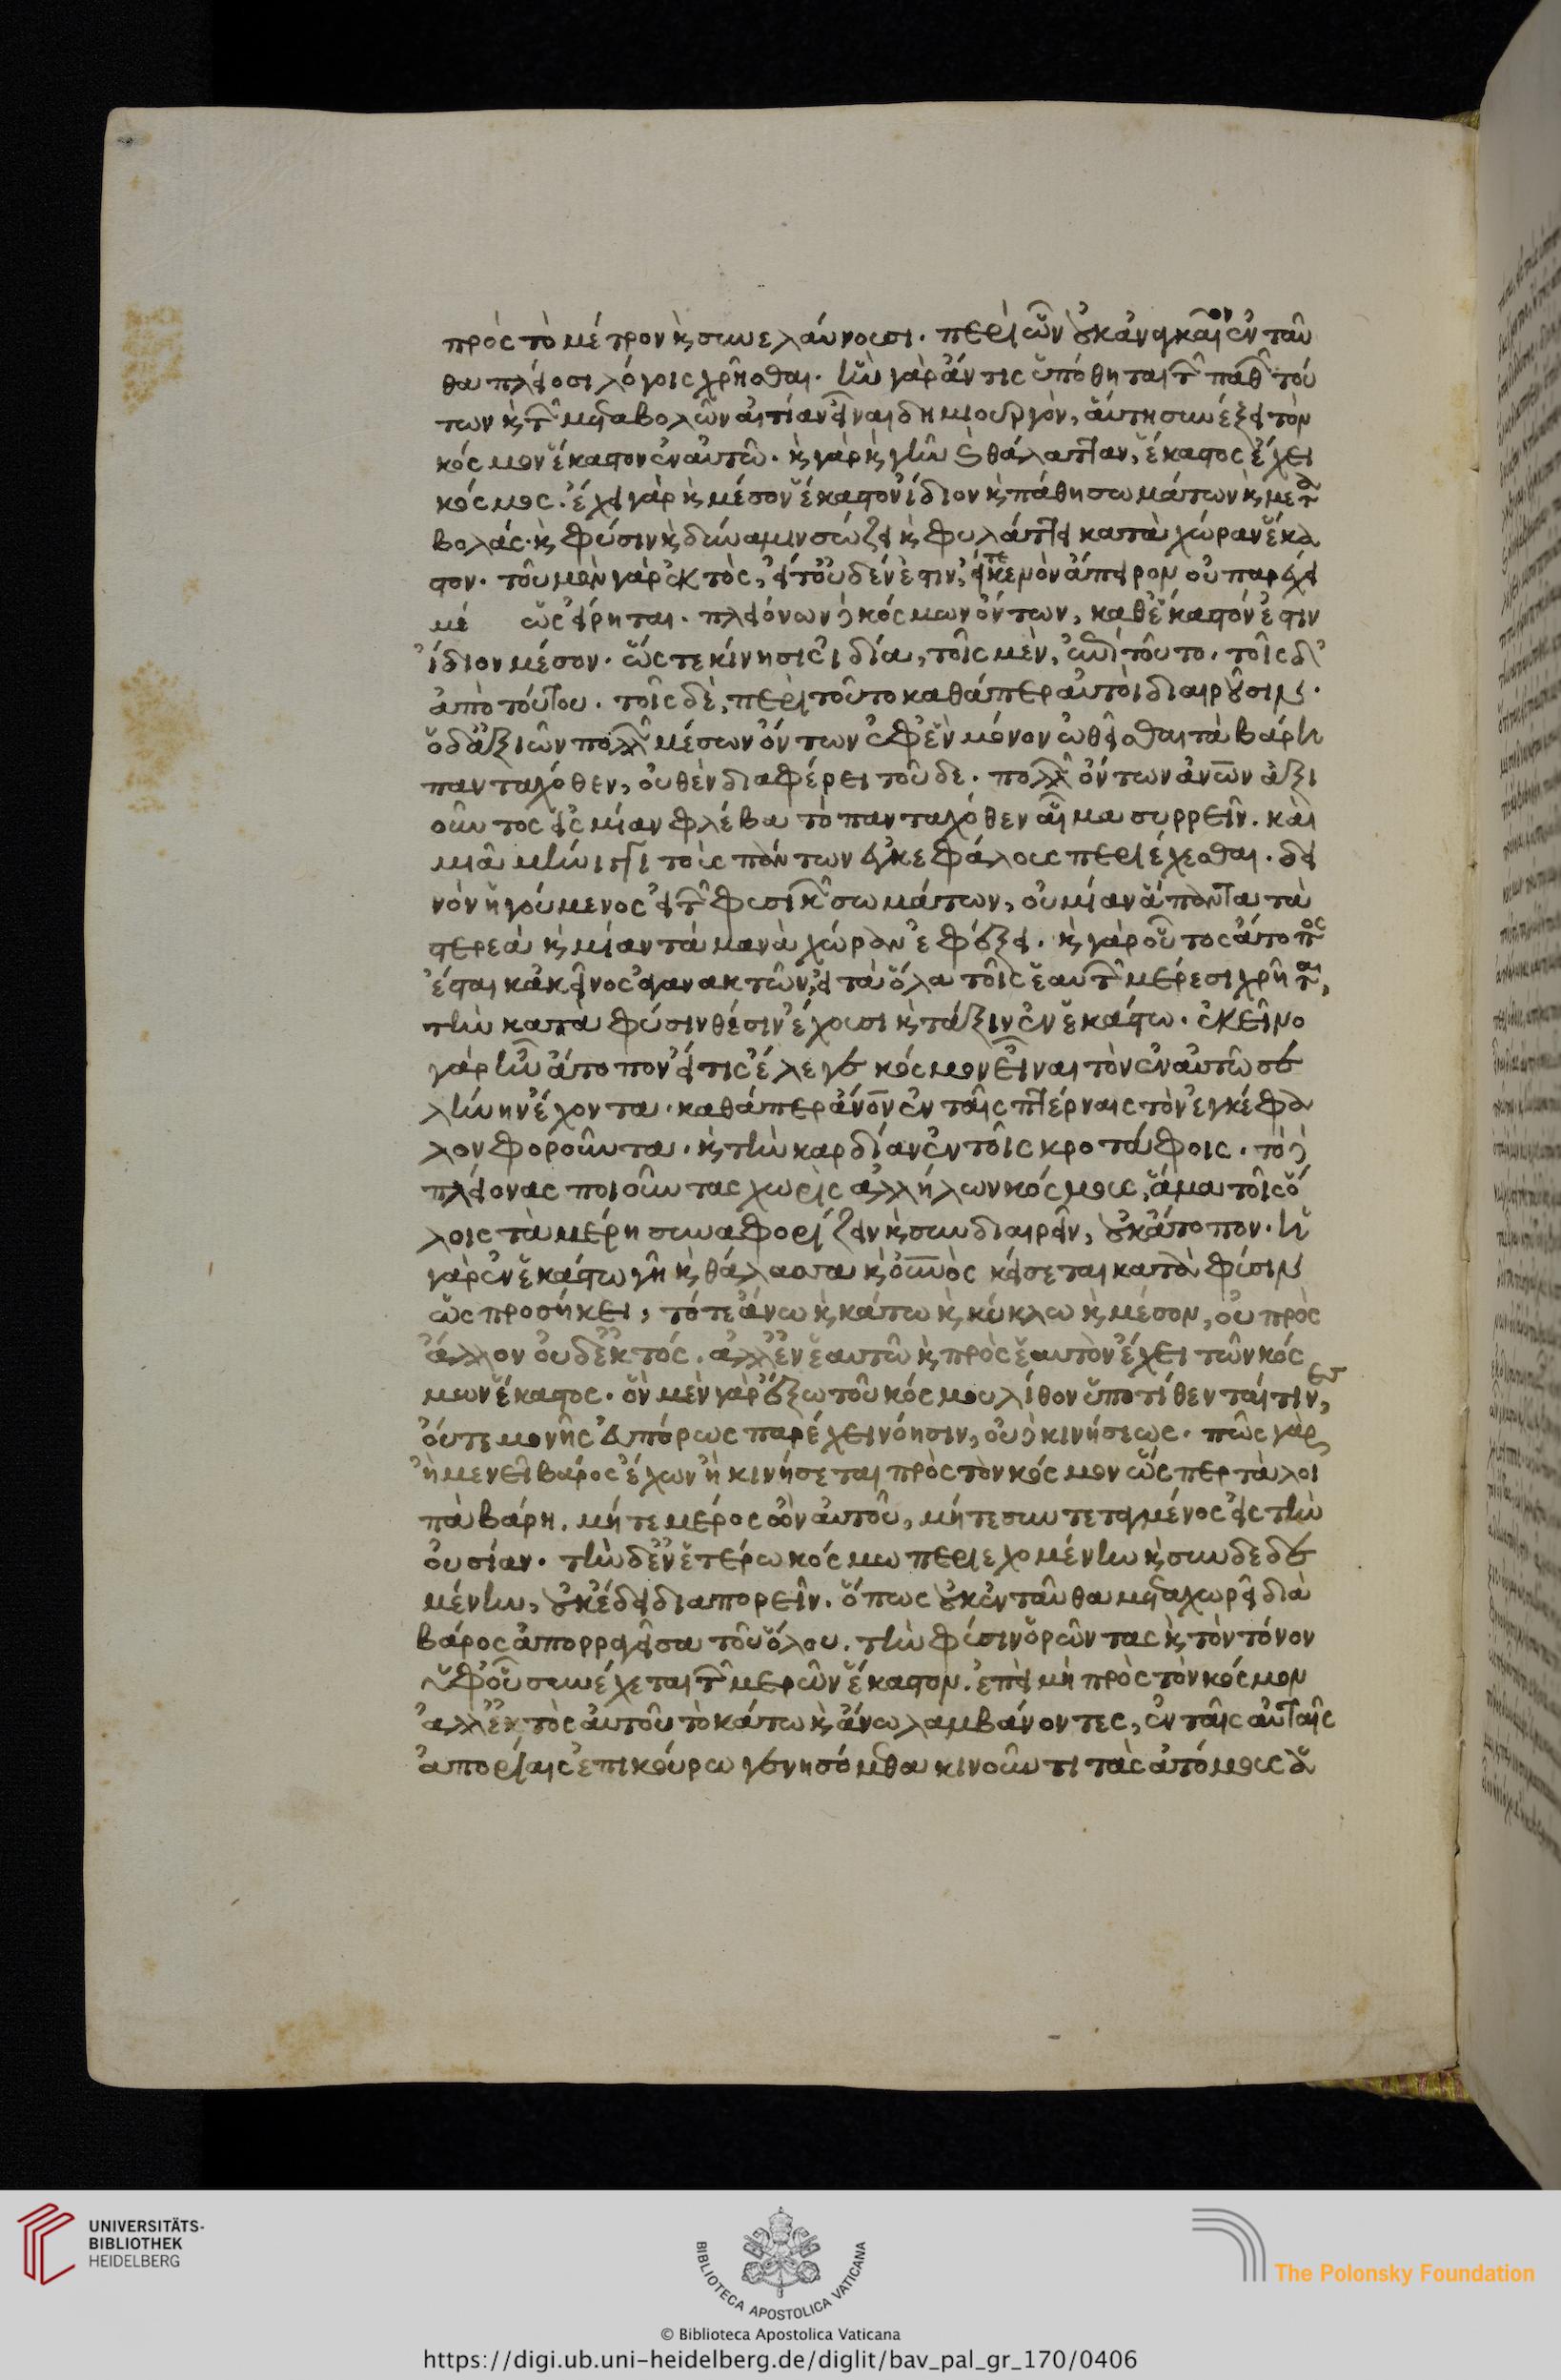 πρὸς τὸ μέτρον καὶ συνελαύνουσι. περὶ ὧν οὐκ ἀναγκαῖον ἐνταῦ
θα πλείοσι λόγοις χρῆσθαι. ἣν γὰρ ἄν τις ὑπόθηται τῶν παθῶν τού
των καὶ τῶν μεταβολῶν αἰτίαν εἶναι δημιουργὸν, αὕτη συνέξει τὸν
κόσμον ἕκαστον ἐν αὐτῶ. καὶ γὰρ καὶ γῆν καὶ θάλατταν, ἕκαστος ἔχει
κόσμος. ἔχει γὰρ καὶ μέσον ἕκαστον ἴδιον καὶ πάθη σωμάτων καὶ μετα
βολάς. καὶ φύσιν καὶ δύναμιν σώζει καὶ φυλάττει κατὰ χώραν ἕκα
στον. τοῦ μὲν γὰρ ἐκτὸς, εἴτ' οὐδέν ἐστιν, εἴτε κενὸν ἄπειρον οὐ παρέχει
μέ ὡς εἴρηται. πλειόνων δὲ κόσμων ὄντων, καθ' ἕκαστόν ἐστιν
ἴδιον μέσον. ὥστε κίνησις ἰδία, τοῖς μὲν, ἐπὶ τοῦτο. τοῖς δ'
ἀπὸ τούτου. τοῖς δὲ, περὶ τοῦτο καθάπερ αὐτοὶ διαιροῦσιν.
ὁ δ' ἀξιῶν πολλῶν μέσων ὄντων ἐφ' ἓν μόνον ὠθεῖσθαι τὰ βάρη
πανταχόθεν, οὐθὲν διαφέρει τοῦδε. πολλῶν ὄντων ἀνων ἀξι
οῦντος εἰς μίαν φλέβα τὸ πανταχόθεν αἷμα συρρεῖν. καὶ
μιᾶ μήνιγγι τοὺς πάντων ἐγκεφάλους περιέχεσθαι. δει
νὸν ἡγούμενος εἰ τῶν φυσικῶν σωμάτων, οὐ μίαν ἅπαντα τὰ
στερεὰ καὶ μίαν τὰ μανὰ χώραν ἐφέξει. καὶ γὰρ οὗτος ἄτοπος
ἔσται κἀκεῖνος ἀγανακτῶν, εἰ τὰ ὅλα τοῖς ἑαυτῶν μέρεσι χρῆται,
τὴν κατὰ φύσιν θέσιν ἔχουσι καὶ τάξιν ἐν ἑκάστω. ἐκεῖνο
γὰρ ἦν ἄτοπον εἴ τις ἔλεγε κόσμον εἶναι τὸν ἐν αὑτῶ σε
λήνην ἔχοντα. καθάπερ ἀνον ἐν ταῖς πτέρναις τὸν ἐγκέφα
λον φοροῦντα. καὶ τὴν καρδίαν ἐν τοῖς κροτάφοις. τὸ δὲ
πλείονας ποιοῦντας χωρὶς ἀλλήλων κόσμους, ἅμα τοῖς ὅ
λοις τὰ μέρη συναφορίζειν καὶ συνδιαιρεῖν, οὐκ ἄτοπον. ἡ
γὰρ ἐν ἑκάστω γῆ καὶ θάλασσα καὶ οὐνὸς κείσεται κατὰ φύσιν
ὡς προσήκει, τό τε ἄνω καὶ κάτω καὶ κύκλω καὶ μέσον, οὐ πρὸς
ἄλλον οὐδ' ἐκτός. ἀλλ' ἐν ἑαυτῶ καὶ πρὸς ἑαυτὸν ἔχει τῶν κόσ
μων ἕκαστος. ὃν μὲν γὰρ ἔξω τοῦ κόσμου λίθον ὑποτίθενταί τινες,
οὔτε μονῆς εὐπόρως παρέχει νόησιν, οὐδὲ κινήσεως. πῶς γὰρ
ἢ μενεῖ βάρος ἔχων ἢ κινήσεται πρὸς τὸν κόσμον ὥσπερ τὰ λοι
πὰ βάρη. μήτε μέρος ὢν αὐτοῦ, μήτε συντεταγμένος εἰς τὴν
οὐσίαν. τὴν δ' ἐν ἑτέρω κόσμω περιεχομένην καὶ συνδεδε
μένην, οὐκ ἔδει διαπορεῖν. ὅπως οὐκ ἐνταῦθα μεταχωρεῖ διὰ
βάρος ἀπορραγεῖσα τοῦ ὅλου. τὴν φύσιν ὁρῶντας καὶ τὸν τόνον
ὑφ' οὗ συνέχεται τῶν μερῶν ἕκαστον. ἐπεὶ μὴ πρὸς τὸν κόσμον
ἀλλ' ἐκτὸς αὐτοῦ τὸ κάτω καὶ ἄνω λαμβάνοντες, ἐν ταῖς αὐταῖς
ἀπορίαις ἐπικούρω γενησόμεθα κινοῦντι τὰς ἀτόμους ἁ
UNIVERSITÄTS-
BIBLIOTHEK
HEIDELBERG
BIBLIOTECA APOSTOLICA VATICANA
The Polonsky Foundation
© Biblioteca Apostolica Vaticana
https://digi.ub.uni-heidelberg.de/diglit/bav_pal_gr_170/0406